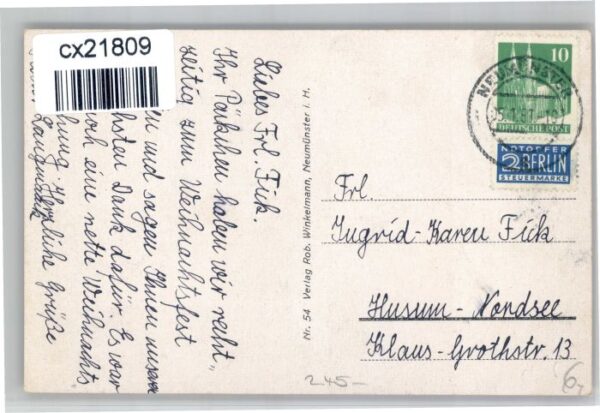 cx21809
Liebes Frl. Fick.
Ihr Päckchen haben wir recht„
zeitig zum Weihnachtsfest
und sagen Ihnen unseren
Dank dafür. Es war
noch eine nette Weihnachts
Herzliche Grüße
Nr. 54 Verlag Rob. Winkelmann, Neumünster i. H.
10
DEUTSCHE POST
NEUMÜNSTER
NOTOPFER
2 BERLIN
STEUERMARKE
Frl.
Ingrid-Karen Fick
Husum-Nordsee
Klaus-Grothstr. 13
2.45-